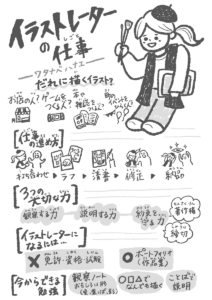 イラストレーター
の仕事
ワタナベハナエ
だれに描くイラスト?
お店の人?
ゲームを
つくる人?
本や
雑誌を
つくる人?
[仕事の進め方]
打ち合わせ
ラフ
清書
修正
納品
[3つの大切な力]
観察する力
説明する力
約束を
守る力
著作権
締切
[イラストレーターに
なるには…
免許・資格・試験
ポートフォリオ
(作品集)
[今からできる
勉強
観察ノート
おもしろい形
○□△で
なんでも描く
ことばで
説明